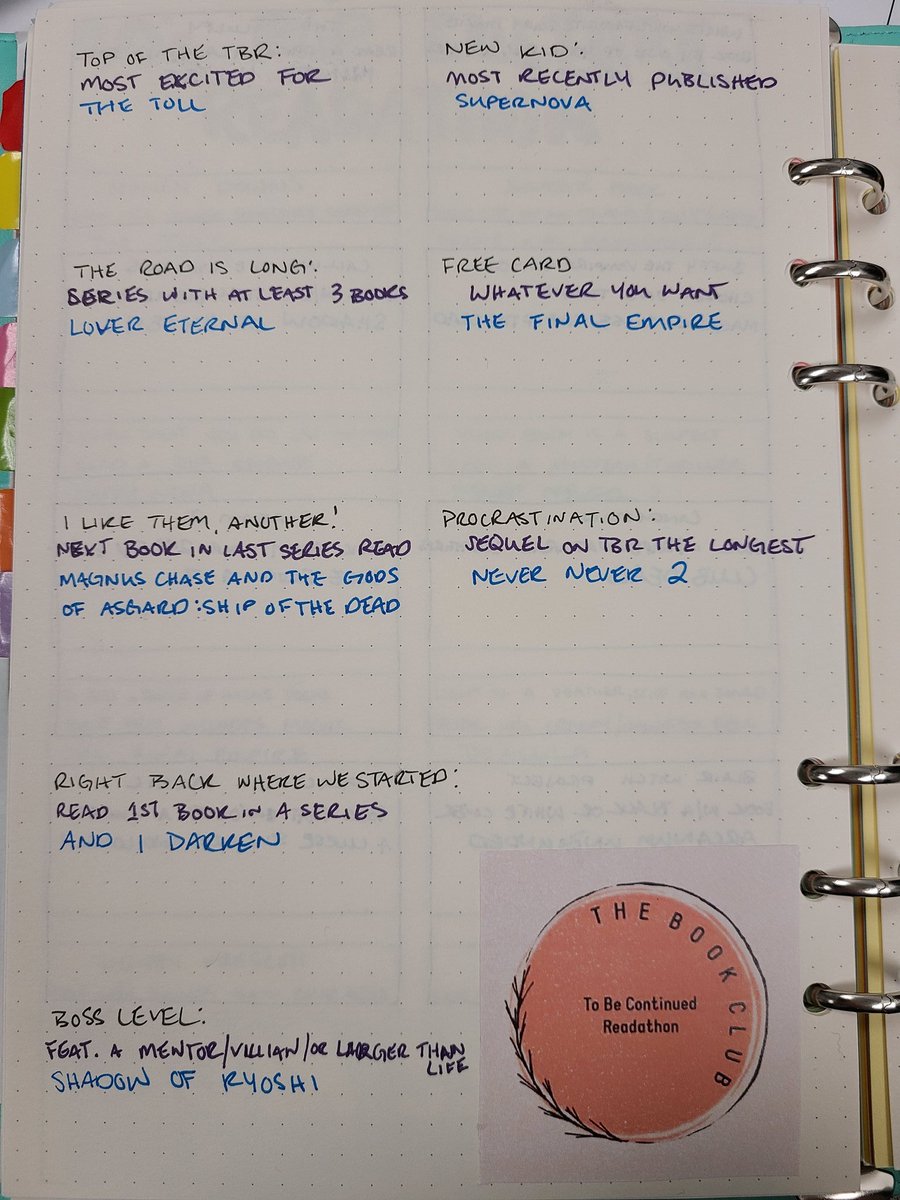 TOP OF THE TBR:
MOST EXCITED FOR
THE TOLL
NEW KID:
MOST RECENTLY PUBLISHED
SUPERNOVA
THE ROAD IS LONG:
SERIES WITH AT LEAST 3 BOOKS
LOVER ETERNAL
FREE CARD
WHATEVER YOU WANT
THE FINAL EMPIRE
I LIKE THEM, ANOTHER!
NEXT BOOK IN LAST SERIES READ
MAGNUS CHASE AND THE GODS
OF ASGARD: SHIP OF THE DEAD
PROCRASTINATION:
SEQUEL ON TBR THE LONGEST
NEVER NEVER 2
RIGHT BACK WHERE WE STARTED:
READ 1ST BOOK IN A SERIES
AND I DARKEN
BOSS LEVEL:
FEAT. A MENTOR/VILLIAN/OR LARGER THAN
LIFE
SHADOW OF KYOSHI
THE BOOK CLUB
To Be Continued
Readathon